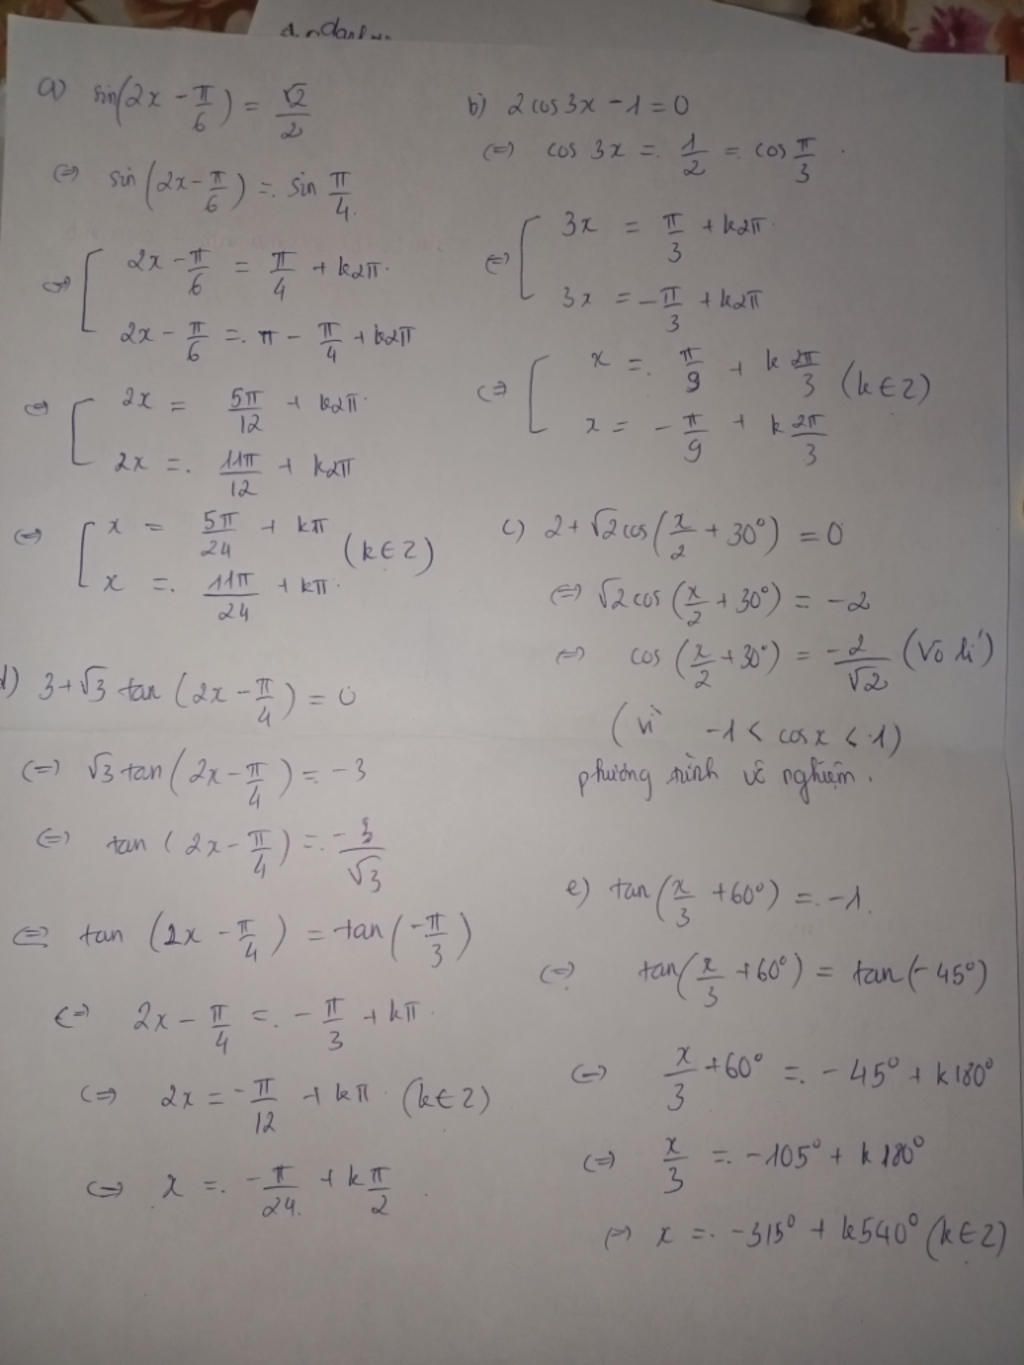 a) sin(2x - π/6) = √2/2
⇔ sin(2x - π/6) = sin π/4
⇔ [ 2x - π/6 = π/4 + k2π
2x - π/6 = π - π/4 + k2π
⇔ [ 2x = 5π/12 + k2π
2x = 11π/12 + k2π
⇔ [ x = 5π/24 + kπ
x = 11π/24 + kπ (k∈Z)
b) 2cos3x - 1 = 0
⇔ cos 3x = 1/2 = cos π/3
⇔ [ 3x = π/3 + k2π
3x = -π/3 + k2π
⇔ [ x = π/9 + k 2π/3 (k∈Z)
x = -π/9 + k 2π/3
c) 2 + √2cos(x/2 + 30°) = 0
⇔ √2cos(x/2 + 30°) = -2
⇔ cos(x/2 + 30°) = -2/√2 (Vô lí)
(vì -1 < cosx < 1)
phương trình vô nghiệm.
d) 3 + √3 tan(2x - π/4) = 0
⇔ √3 tan(2x - π/4) = -3
⇔ tan(2x - π/4) = -3/√3
⇔ tan(2x - π/4) = tan(-π/3)
⇔ 2x - π/4 = -π/3 + kπ
⇔ 2x = -π/12 + kπ (k∈Z)
⇔ x = -π/24 + k π/2
e) tan(x/3 + 60°) = -1.
⇔ tan(x/3 + 60°) = tan(-45°)
⇔ x/3 + 60° = -45° + k180°
⇔ x/3 = -105° + k180°
⇔ x = -315° + k540° (k∈Z)